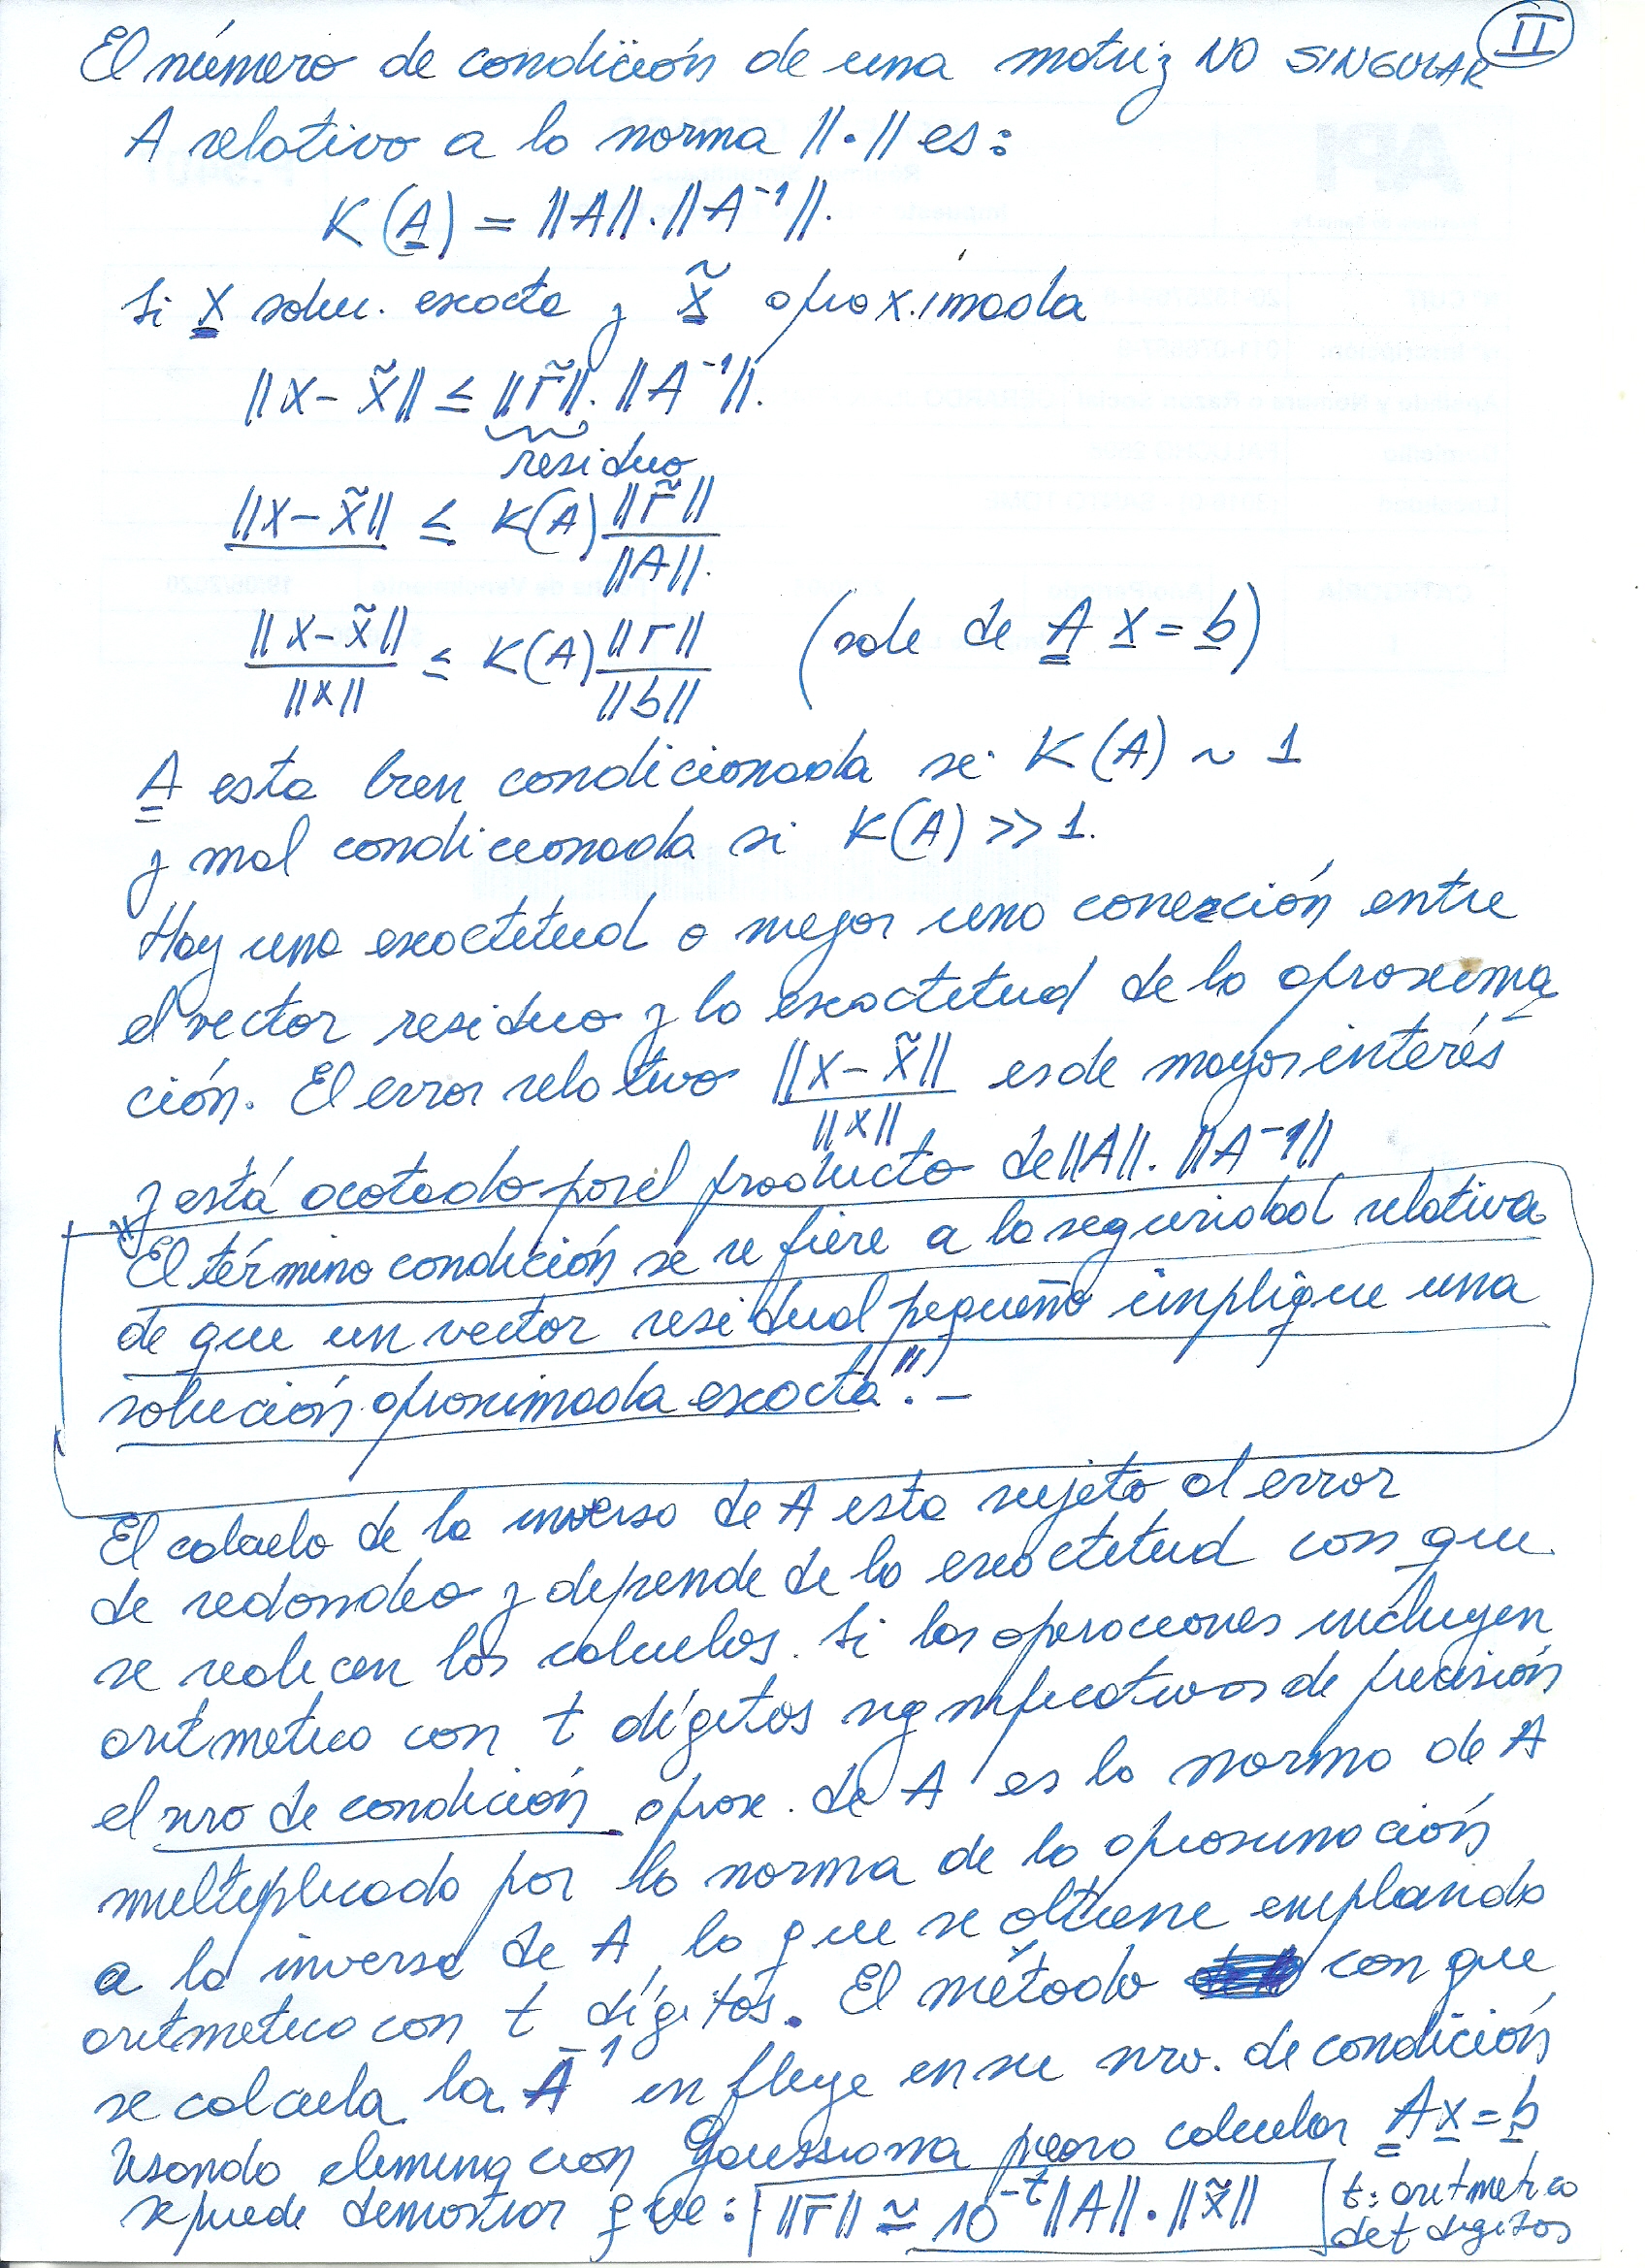 II
El número de condición de una matriz NO SINGULAR
A relativo a la norma ||·|| es:
K(A) = ||A||·||A⁻¹||.
Si x soluc. exacta y x̃ aproximada
||x-x̃|| ≤ ||r̃||·||A⁻¹||.
residuo
||x-x̃|| ≤ K(A) ||r̃|| / ||A||.
||x-x̃|| / ||x|| ≤ K(A) ||r|| / ||b|| (sale de A x = b)
A esta bien condicionada si K(A) ~ 1
y mal condicionada si K(A) >> 1.
Hay una exactitud o mejor una conexción entre
el vector residuo y la exactitud de la aproxima
ción. El error relativo ||x-x̃|| / ||x|| es de mayor interés
y está acotado por el producto de ||A||·||A⁻¹||
"El término condición se refiere a la seguridad relativa
de que un vector residual pequeño implique una
solución aproximada exacta".-
El calculo de la inversa de A esta sujeto al error
de redondeo y depende de la exactitud con que
se realicen los calculos. Si las operaciones incluyen
aritmetica con t dígitos significativos de precisión
el nro de condición aprox. de A es la norma de A
multiplicada por la norma de la aproximación
a la inversa de A, lo que se obtiene emplando
aritmetica con t dígitos. El método con que
se calcula la A⁻¹ influye en su nro. de condición
Usando eliminacion Gaussiana para calcular A x = b
se puede demostrar que: ||r̄|| ≃ 10⁻ᵗ ||A||·||x̃||
t: aritmetica
de t digitos